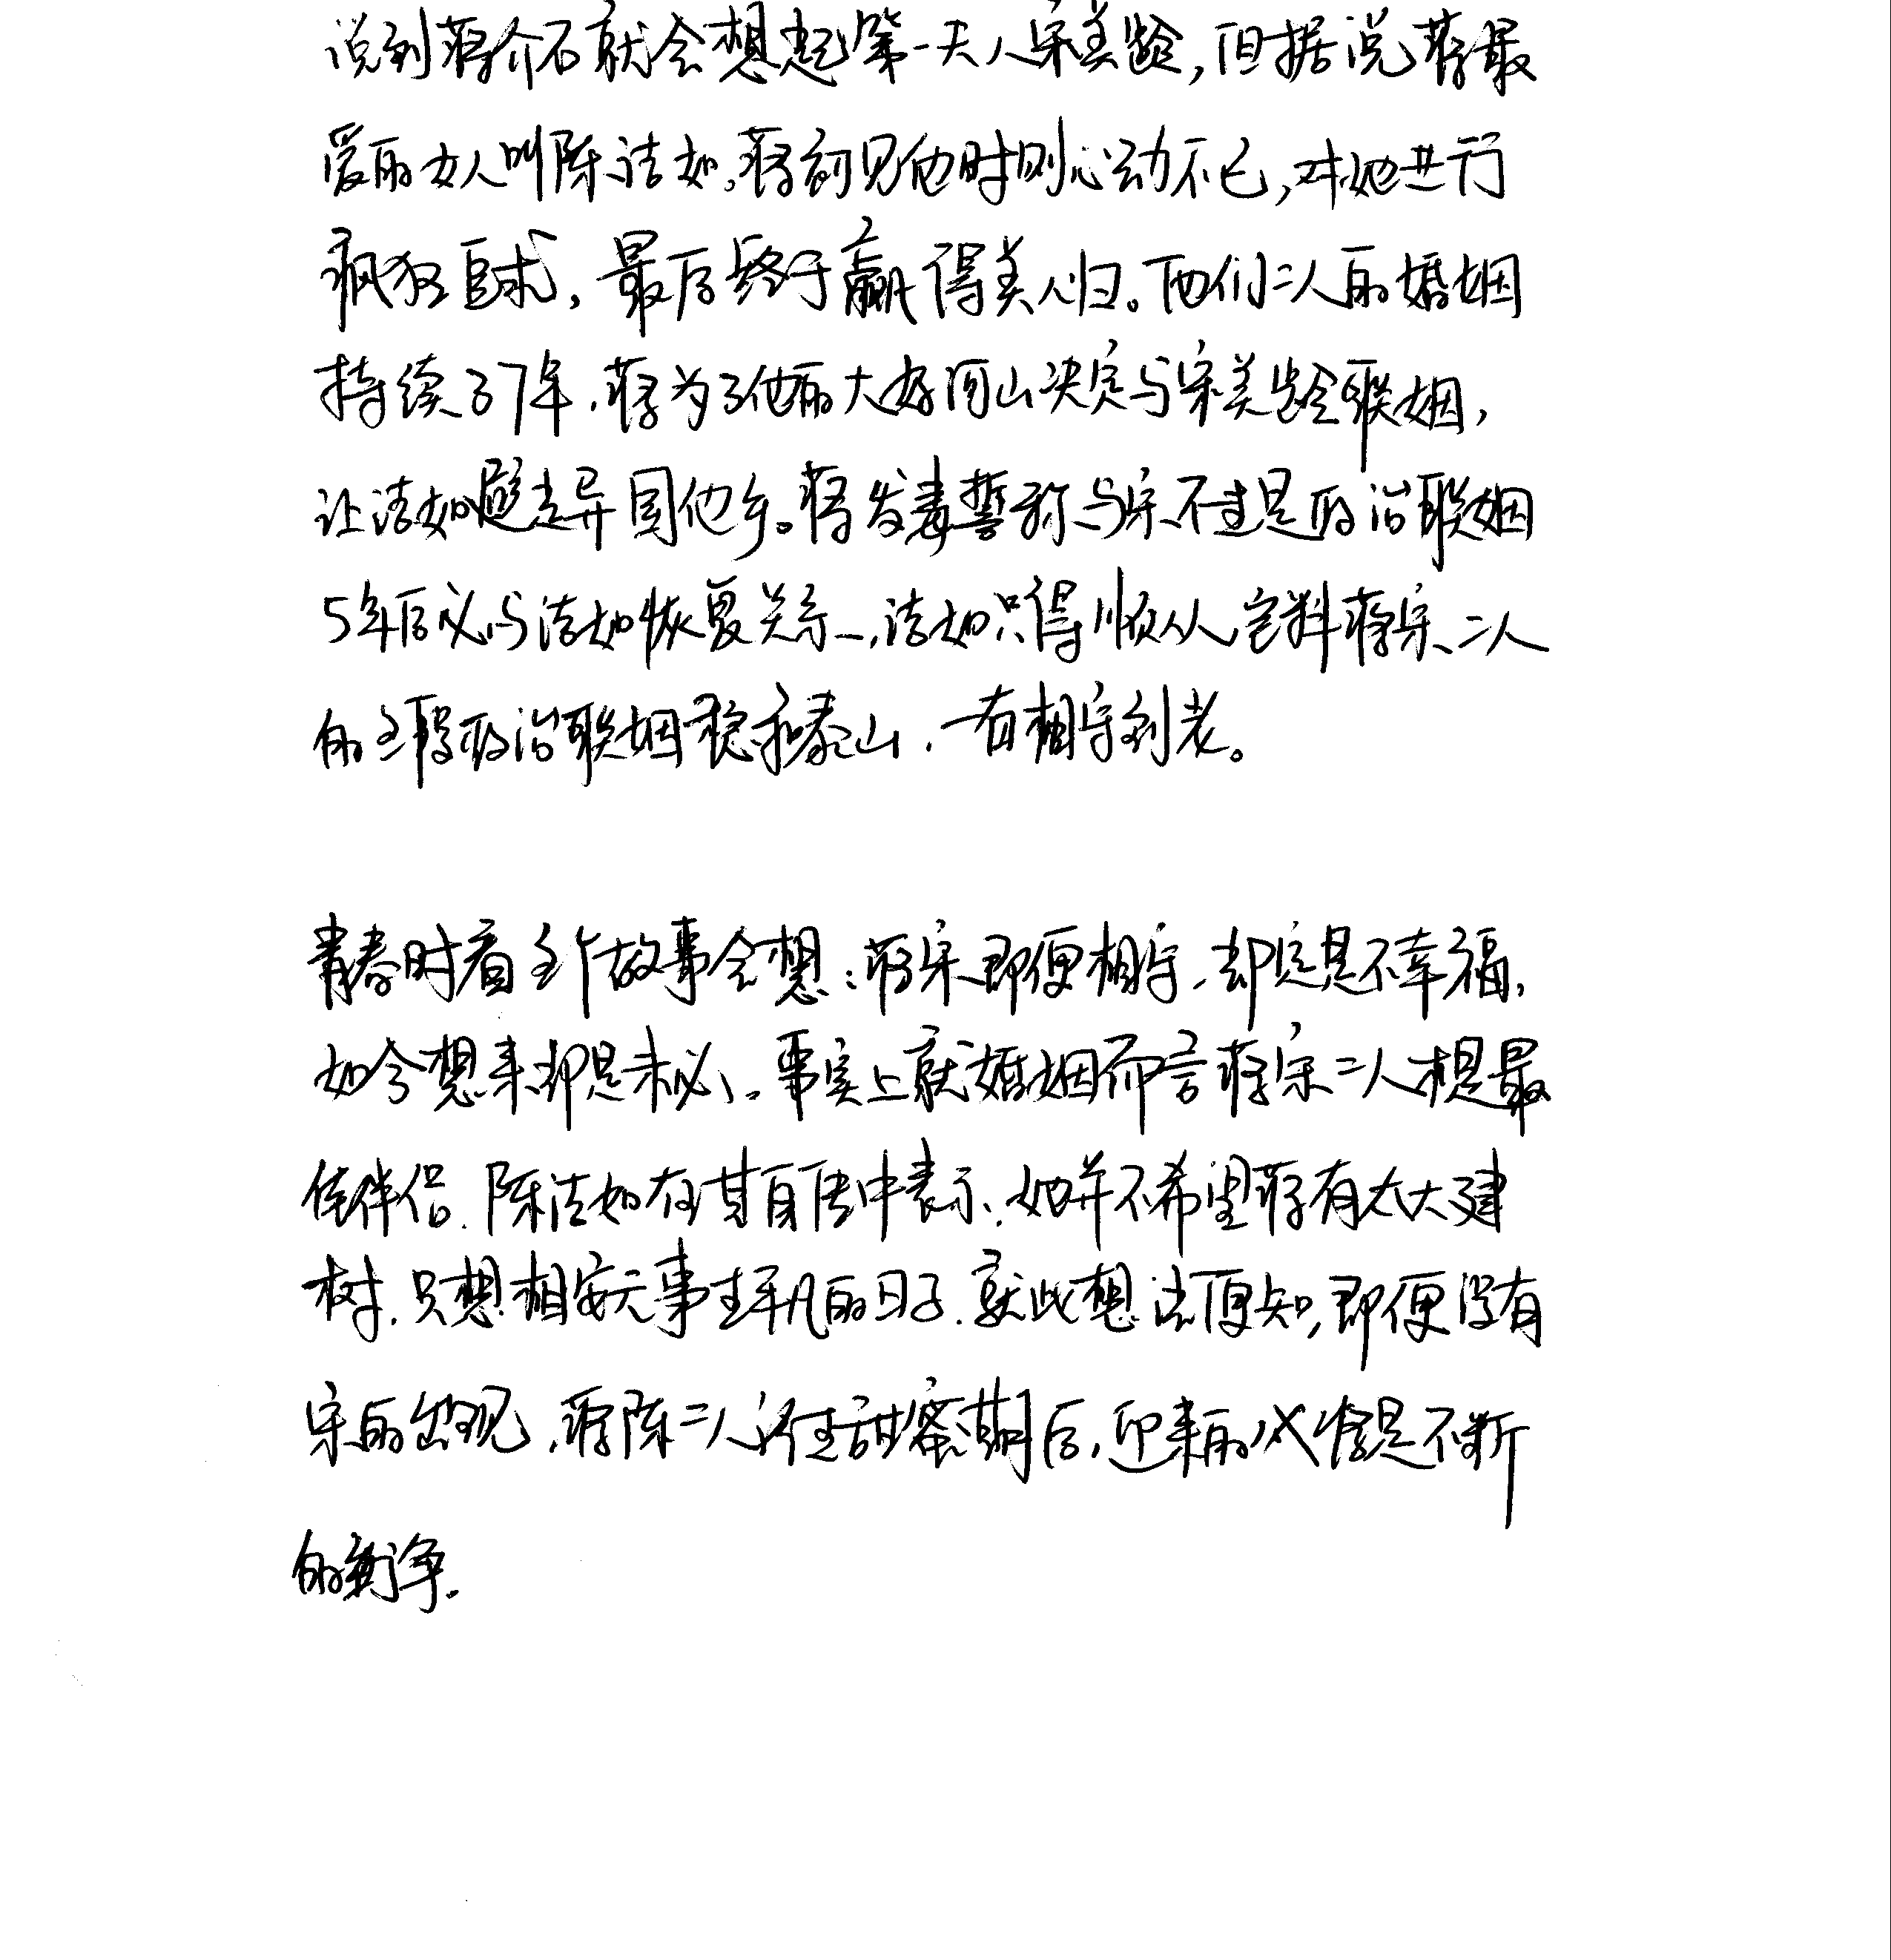 说到蒋介石就会想起第一夫人宋美龄,但据说蒋最
爱的女人叫陈洁如,蒋初见他时则心动不已,对她进行
疯狂追求,最后终于赢得美人归。而他们二人的婚姻
持续了7年,蒋为了他的大好河山决定与宋美龄联姻,
让洁如避走异国他乡。蒋发毒誓称与宋不过是政治联姻
5年后必与洁如恢复关系,洁如只得顺从,岂料蒋宋二人
的这段政治联姻稳如泰山,一直相守到老。
青春时看这个故事会想:蒋宋即便相守,却定是不幸福,
如今想来却是未必。事实上就婚姻而言蒋宋二人想是最
佳伴侣.陈洁如在其自传中表示,她并不希望蒋有太大建
树,只想相安无事过平凡的日子.就此想法便知,即便没有
宋的出现,蒋陈二人过了甜蜜期后,迎来的必当是不断
的纷争.